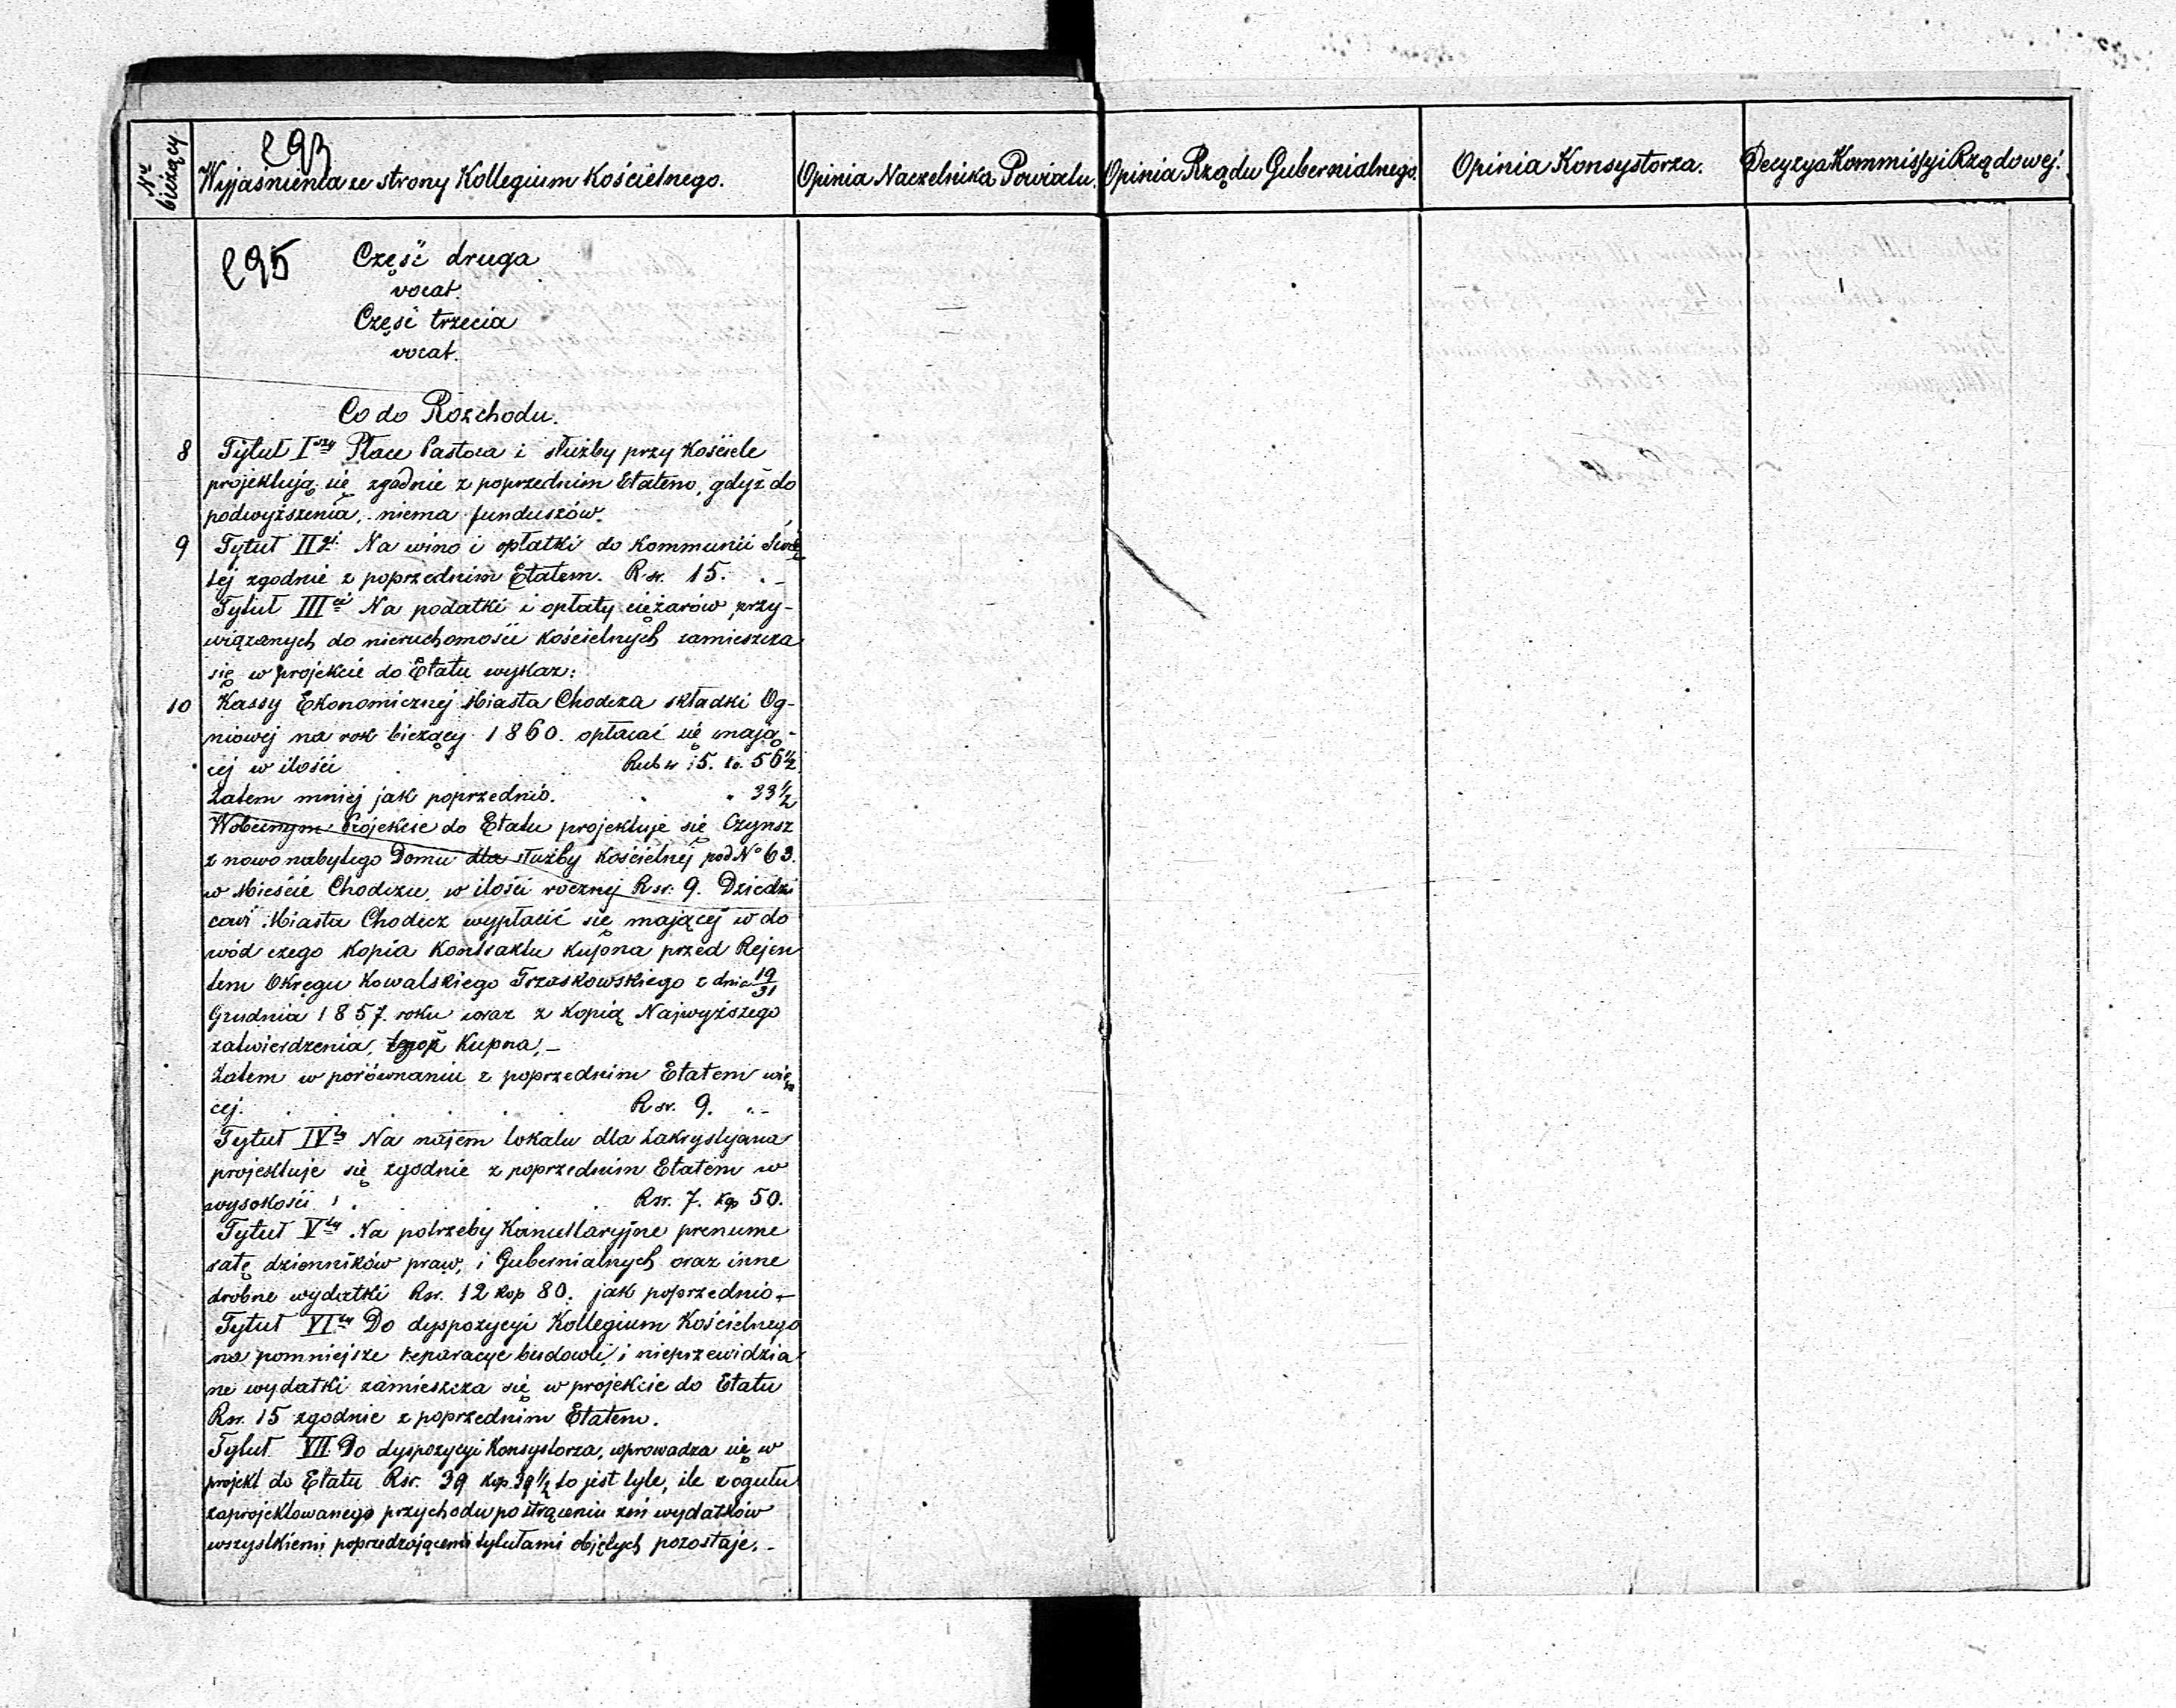 293
Nr bieżący
Wyjaśnienia ze strony Kollegium Kościelnego.
Opinia Naczelnika Powiatu.
Opinia Rządu Gubernialnego.
Opinia Konsystorza.
Decyzya Kommissyi Rządowej.
295
Część druga
vocat.
Część trzecia
vocat.
Co do Rozchodu.
8 Tytuł I szy Płace Pastora i służby przy Kościele
projektują się zgodnie z poprzednim Etatem, gdyż do
podwyższenia, niema funduszów.
9 Tytuł II gi Na wino i opłatki do Kommunii Świę
tej zgodnie z poprzednim Etatem. R sr. 15. „ -
Tytuł III ci Na podatki i opłaty ciężarów przy-
wiązanych do nieruchomości Kościelnych zamieszcza
się w projekcie do Etatu wykaz:
10 Kassy Ekonomicznej Miasta Chodcza składki Og-
niowej na rok bieżący 1860. opłacać się mają-
cej w ilości Rub sr 5. ko. 56 1/2
Zatem mniej jak poprzednio. „ 33 1/2
W obecnym Projekcie do Etatu projektuje się Czynsz
z nowo nabytego Domu dla służby Kościelnej pod No 63.
w Mieście Chodczu, w ilości rocznej R sr. 9. Dziedzi
cowi Miasta Chodecz wypłacić się mającej w do
wód czego kopia Kontraktu kupna przed Rejen
tem Okręgu Kowalskiego Trzaskowskiego z dnia 19/31
Grudnia 1857. roku oraz z kopią Najwyższego
zatwierdzenia, tegoż Kupna, -
Zatem w porównaniu z poprzednim Etatem wię
cej. R sr. 9. „ -
Tytuł IV ty Na najem lokalu dla Zakrystyana
projektuje się zgodnie z poprzednim Etatem w
wysokości R sr. 7. kop 50.
Tytuł V ty Na potrzeby Kancellaryjne prenume
ratę dzienników praw, i Gubernialnych oraz inne
drobne wydatki R sr. 12 kop 80. jak poprzednio -
Tytuł VI ty Do dyspozycyi Kollegium Kościelnego
na pomniejsze reparacye budowli, i nieprzewidzia
ne wydatki zamieszcza się w projekcie do Etatu
R sr. 15 zgodnie z poprzednim Etatem.
Tytuł VII Do dyspozycyi Konsystorza, wprowadza się w
projekt do Etatu R sr. 39 kop. 39 1/2 to jest tyle, ile z ogułu
zaprojektowanego przychodu po strąceniu zeń wydatków
wszystkiemi poprzedzającemi tytułami objętych pozostaje. -